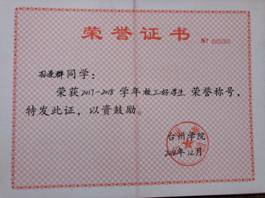 荣誉证书
同学：
荣获2017-2018学年校三好学生荣誉称号，
特发此证，以资鼓励。
台州学院
2018年12月